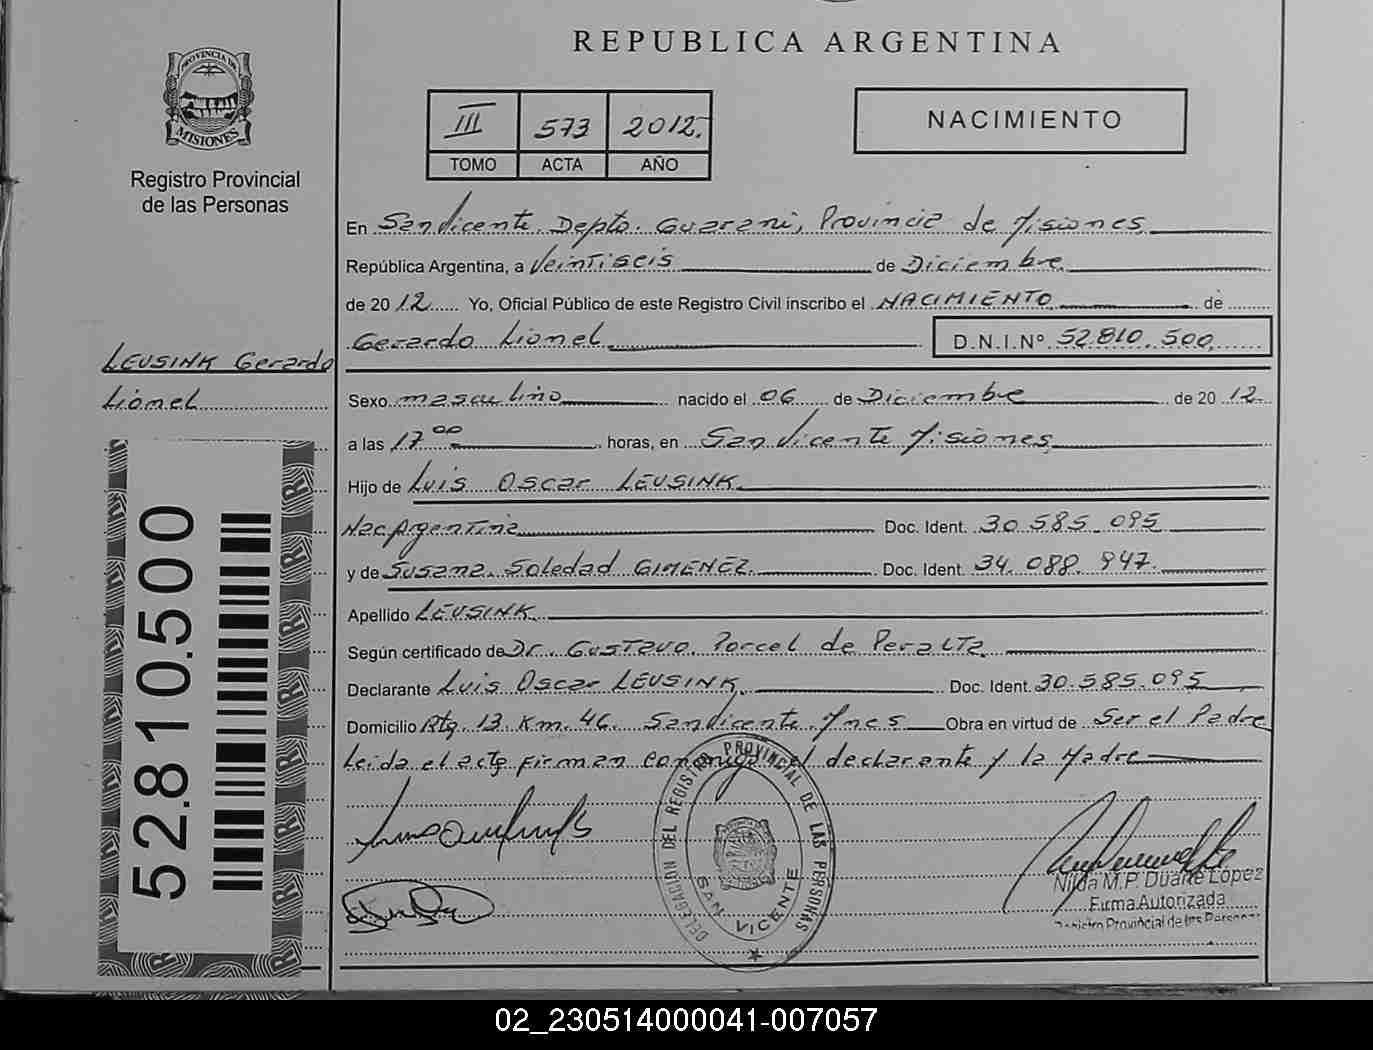 REPUBLICA ARGENTINA
PROVINCIA DE
MISIONES
Registro Provincial
de las Personas
III 573 2012.
TOMO ACTA AÑO
NACIMIENTO
En San Vicente. Depto. Guarani, Provincia de Misiones
República Argentina, a Veintiseis de Diciembre
de 2012 Yo, Oficial Público de este Registro Civil inscribo el NACIMIENTO de
Gerardo Lionel D.N.I.Nº 52.810.500
LEUSINK Gerardo
Lionel
Sexo masculino nacido el 06 de Diciembre de 2012
a las 17 00 horas, en San Vicente Misiones
Hijo de Luis Oscar LEUSINK
Nac Argentina Doc. Ident. 30.585.095
y de Susana Soledad GIMENEZ Doc. Ident. 34.088.947
Apellido LEUSINK
Según certificado de Dr. Gustavo Porcel de Peralta
Declarante Luis Oscar LEUSINK Doc. Ident. 30.585.095
Domicilio Rta. 13 Km. 46. San Vicente Mnes Obra en virtud de Ser el Padre
Leida el acta firman conmigo el declarante y la Madre
52.810.500
DELEGACION DEL REGISTRO PROVINCIAL DE LAS PERSONAS
SAN VICENTE
Nilda M.P. Duarte López
Firma Autorizada
Registro Provincial de las Personas
02_230514000041-007057